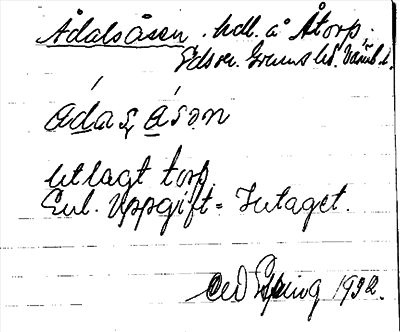 Ådalsåsen. hdl. å Åtorp.
Edsv. Grums hd. Värml.
ádas, ásn
Utlagt torp.
Enl. Uppgift = Intaget.
1932.